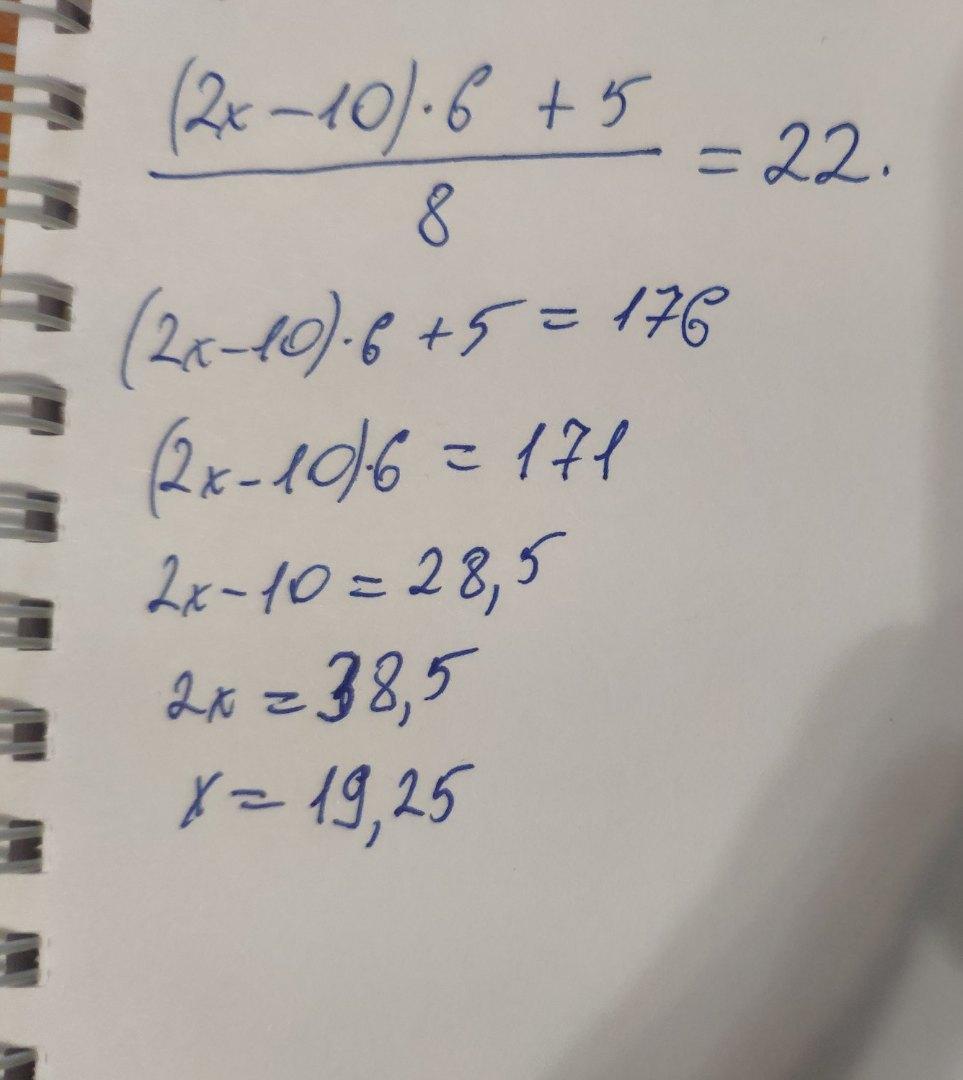 (2x-10)·6 +5
8
= 22.
(2x-10)·6 +5 = 176
(2x-10)·6 = 171
2x-10 = 28,5
2x = 38,5
x = 19,25